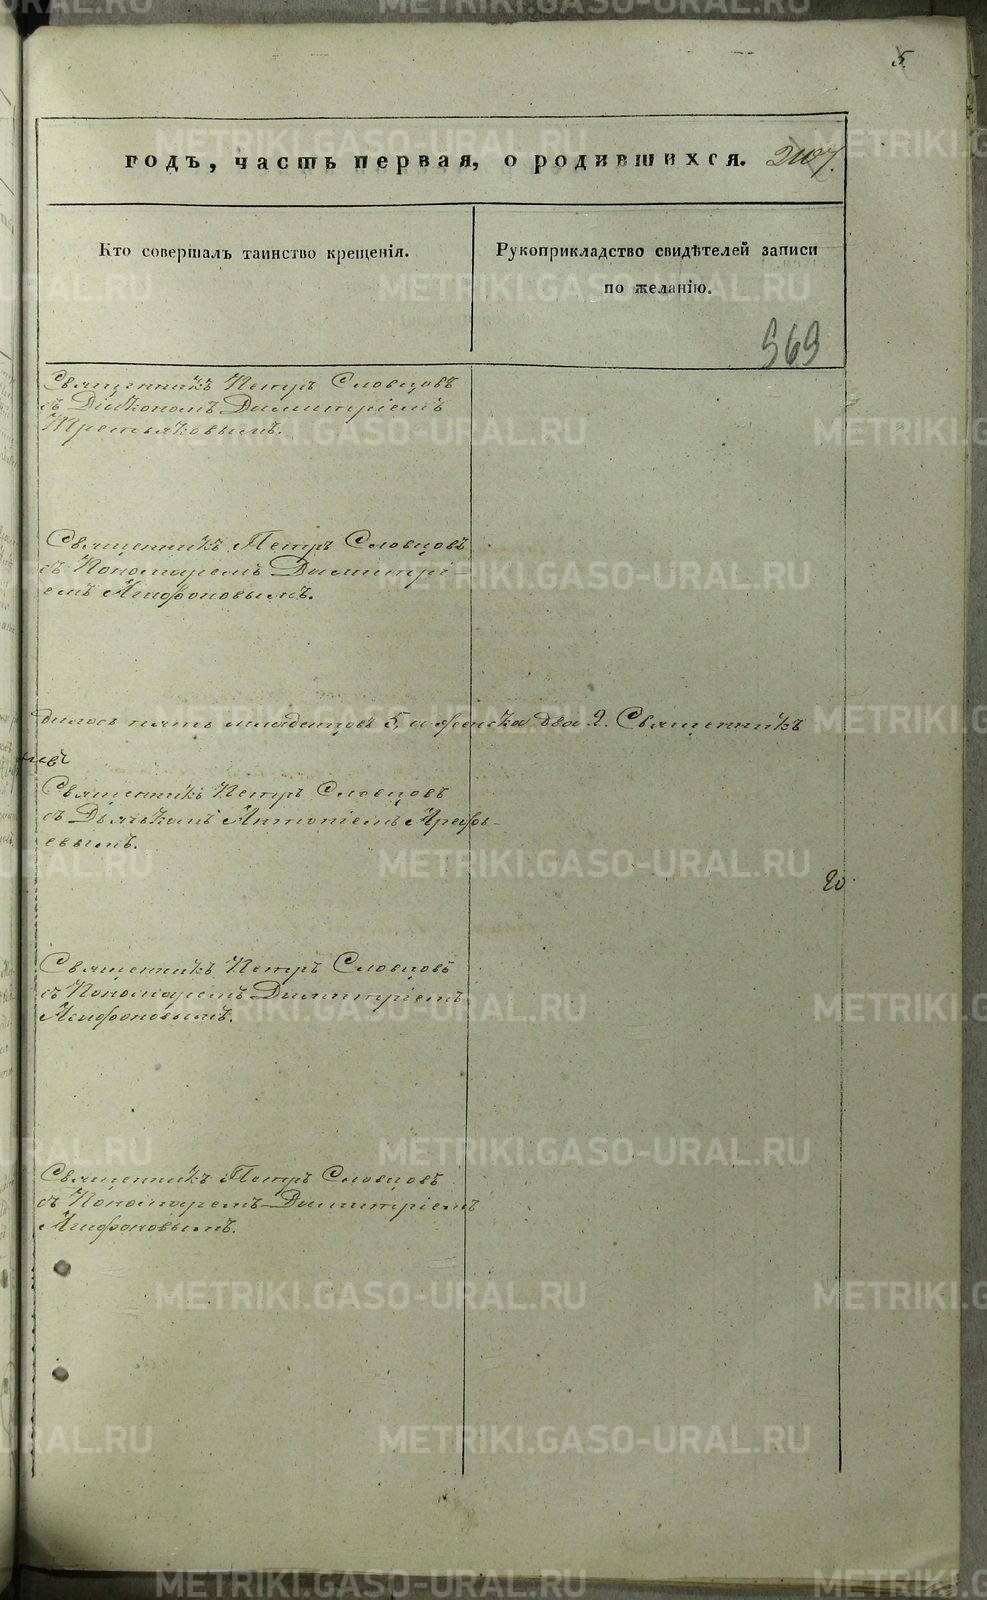 5.
годъ, часть первая, о родившихся. 207.
Кто совершалъ таинство крещенія.
Рукоприкладство свидѣтелей записи
по желанію.
569
Священникъ Петръ Словцовъ
съ Діакономъ Димитріемъ
Третьяковымъ.
Священникъ Петръ Словцовъ
съ Пономаремъ Димитрі-
емъ Агафоновымъ.
дилось пять младенцовъ 5, а женска два 2. Священникъ
Священникъ Петръ Словцовъ
съ Дьячкомъ Антоніемъ Арефь-
евымъ.
20
Священникъ Петръ Словцовъ
съ Пономаремъ Димитріемъ
Агафоновымъ.
Священникъ Петръ Словцовъ
съ Пономаремъ Димитріемъ
Агафоновымъ.
METRIKI.GASO-URAL.RU